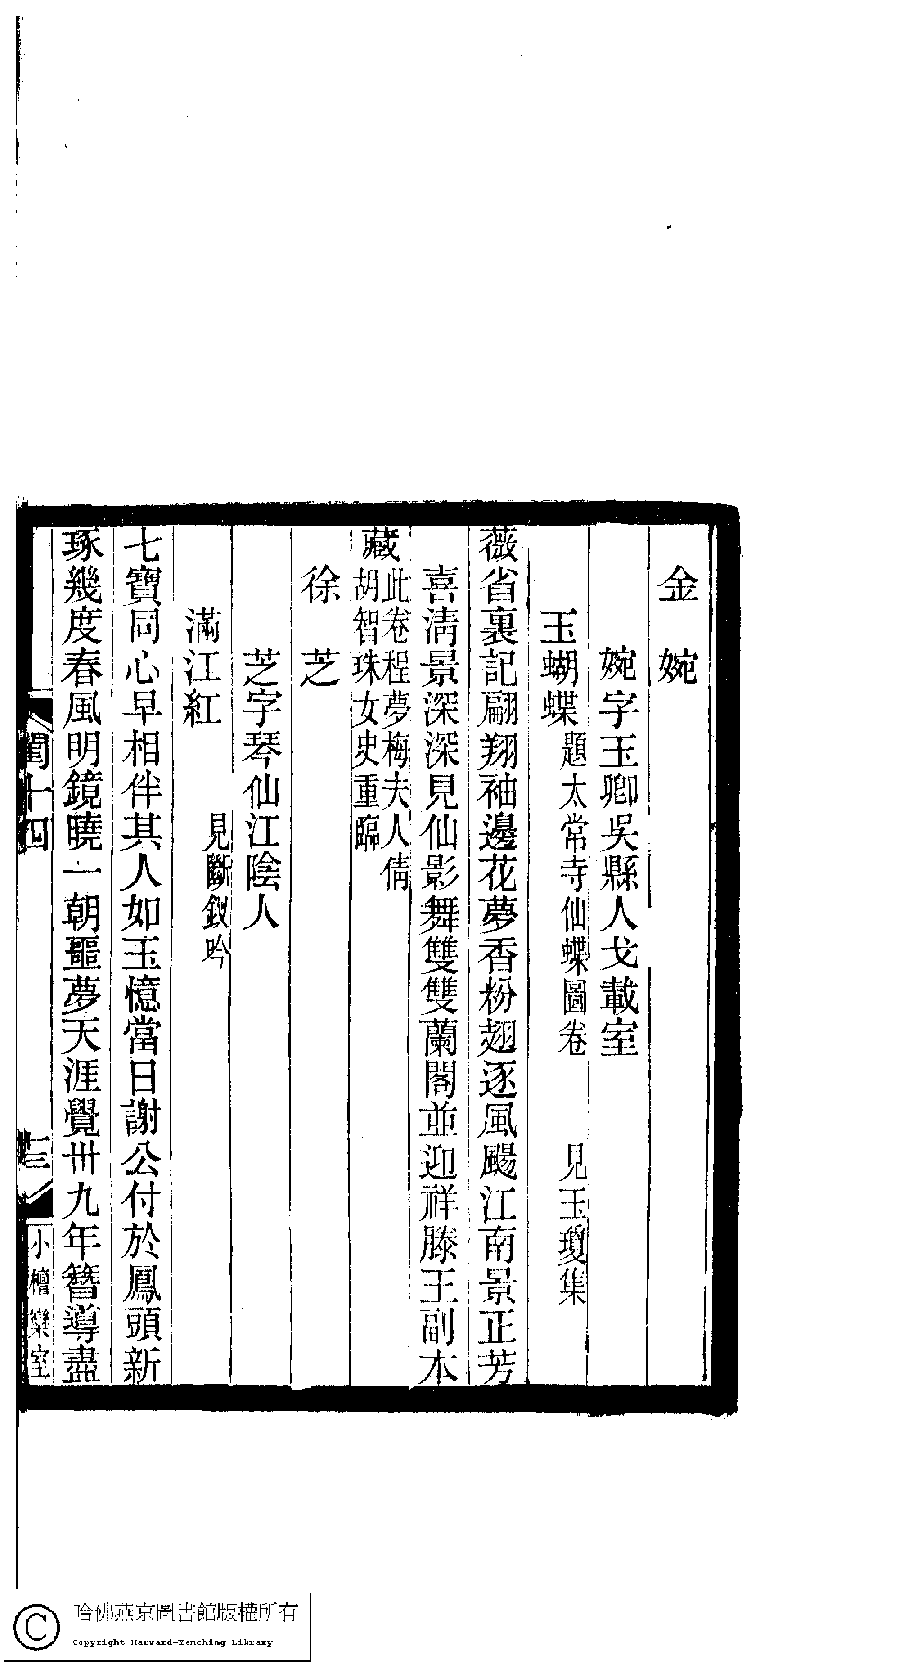 金婉
婉字玉卿吳縣人戈載室
玉蝴蝶 題太常寺仙蝶圖卷 見玉瓊集
薇省裏記翩翔袖邊花夢香粉翅逐風颺江南景正芳
喜清景深深見仙影舞雙雙蘭閣並迎祥滕王副本
藏 此卷程夢梅夫人倩
胡智珠女史重臨
徐芝
芝字琴仙江陰人
滿江紅 見斷釵吟
七寶同心早相伴其人如玉憶當日謝公付於鳳頭新
琢幾度春風明鏡曉一朝噩夢天涯覺卅九年簪導盡
閨十四
小檀欒室
哈佛燕京圖書館版權所有
Copyright Harvard-Yenching Library